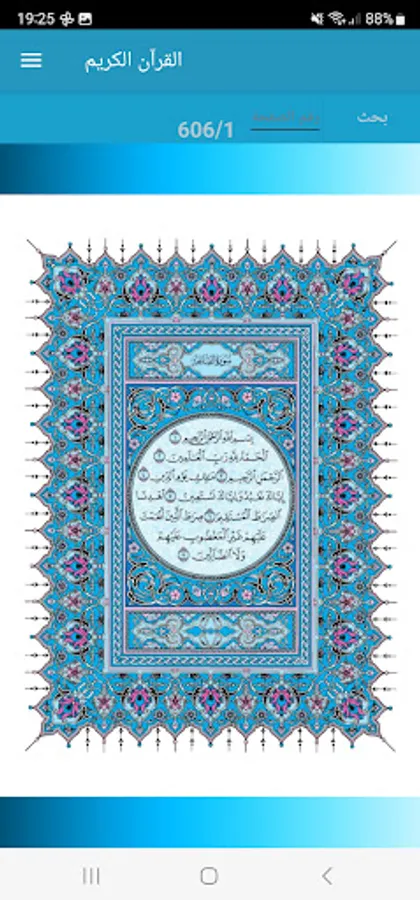 19:25
88%
القرآن الكريم
بحث
606/1
سورة الفاتحة
بِسْمِ اللَّهِ الرَّحْمَٰنِ الرَّحِيمِ ١
الْحَمْدُ لِلَّهِ رَبِّ الْعَالَمِينَ ٢
الرَّحْمَٰنِ الرَّحِيمِ ٣ مَالِكِ يَوْمِ الدِّينِ ٤
إِيَّاكَ نَعْبُدُ وَإِيَّاكَ نَسْتَعِينُ ٥ اهْدِنَا
الصِّرَاطَ الْمُسْتَقِيمَ ٦ صِرَاطَ الَّذِينَ أَنْعَمْتَ
عَلَيْهِمْ غَيْرِ الْمَغْضُوبِ عَلَيْهِمْ
وَلَا الضَّالِّينَ ٧